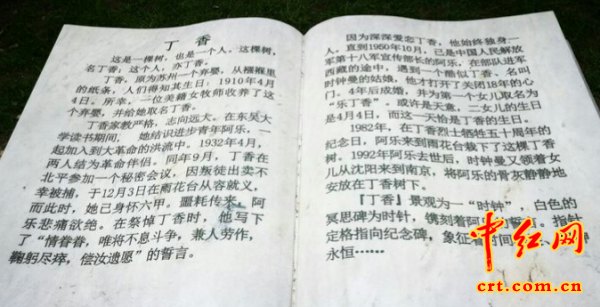 丁 香
这是一棵树，也是一个人。这棵树，
名丁香；这个人，亦丁香。
丁香，原为苏州一个弃婴，从襁褓里
的纸条，人们得知其生日：1910年4月
4日。所幸，一位美籍女牧师收养了这
个弃婴，并给她取名丁香。
丁香家教严格，志向远大。在东吴大
学读书期间，她结识进步青年阿乐，一
起加入到大革命的洪流中。1932年4月，
两人结为革命伴侣。同年9月，丁香在
北平参加一个秘密会议，因叛徒出卖不
幸被捕，于12月3日在雨花台从容就义，
而此时，她已身怀六甲。噩耗传来，阿
乐悲痛欲绝。在祭悼丁香时，他写下
了“情眷眷，唯将不息斗争，兼人劳作，
鞠躬尽瘁，偿汝遗愿”的誓言。
因为深深爱恋丁香，他始终独身一
人。直到1950年10月，已是中国人民解放
军第十八军宣传部长的阿乐，在部队进军
西藏的途中，遇到一个酷似丁香、名叫
时钟曼的姑娘，他才打开了关闭18年的心
门。4年后成婚，并为第一个女儿取名为
“乐丁香”。或许是天意，二女儿的生日
是4月4日，而这一天恰是丁香的生日。
1982年，在丁香烈士牺牲五十周年的
纪念日，阿乐来到雨花台栽下了这棵丁香
树。1992年阿乐去世后，时钟曼又领着女
儿从沈阳来到南京，将阿乐的骨灰静静地
安放在丁香树下。
『丁香』景观为一“时钟”，白色的
冥思碑为时针，镌刻着阿乐的誓言。指针
定格指向纪念碑，象征着时间
永恒……
中红网
crt.com.cn